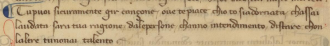 Tu puoi sicuramente gir cançone · oue te piace · cho to siadornata · chassai
laudata sara tua ragione · dale persone channo intendimento · distare chon
laltre tu non ai talento